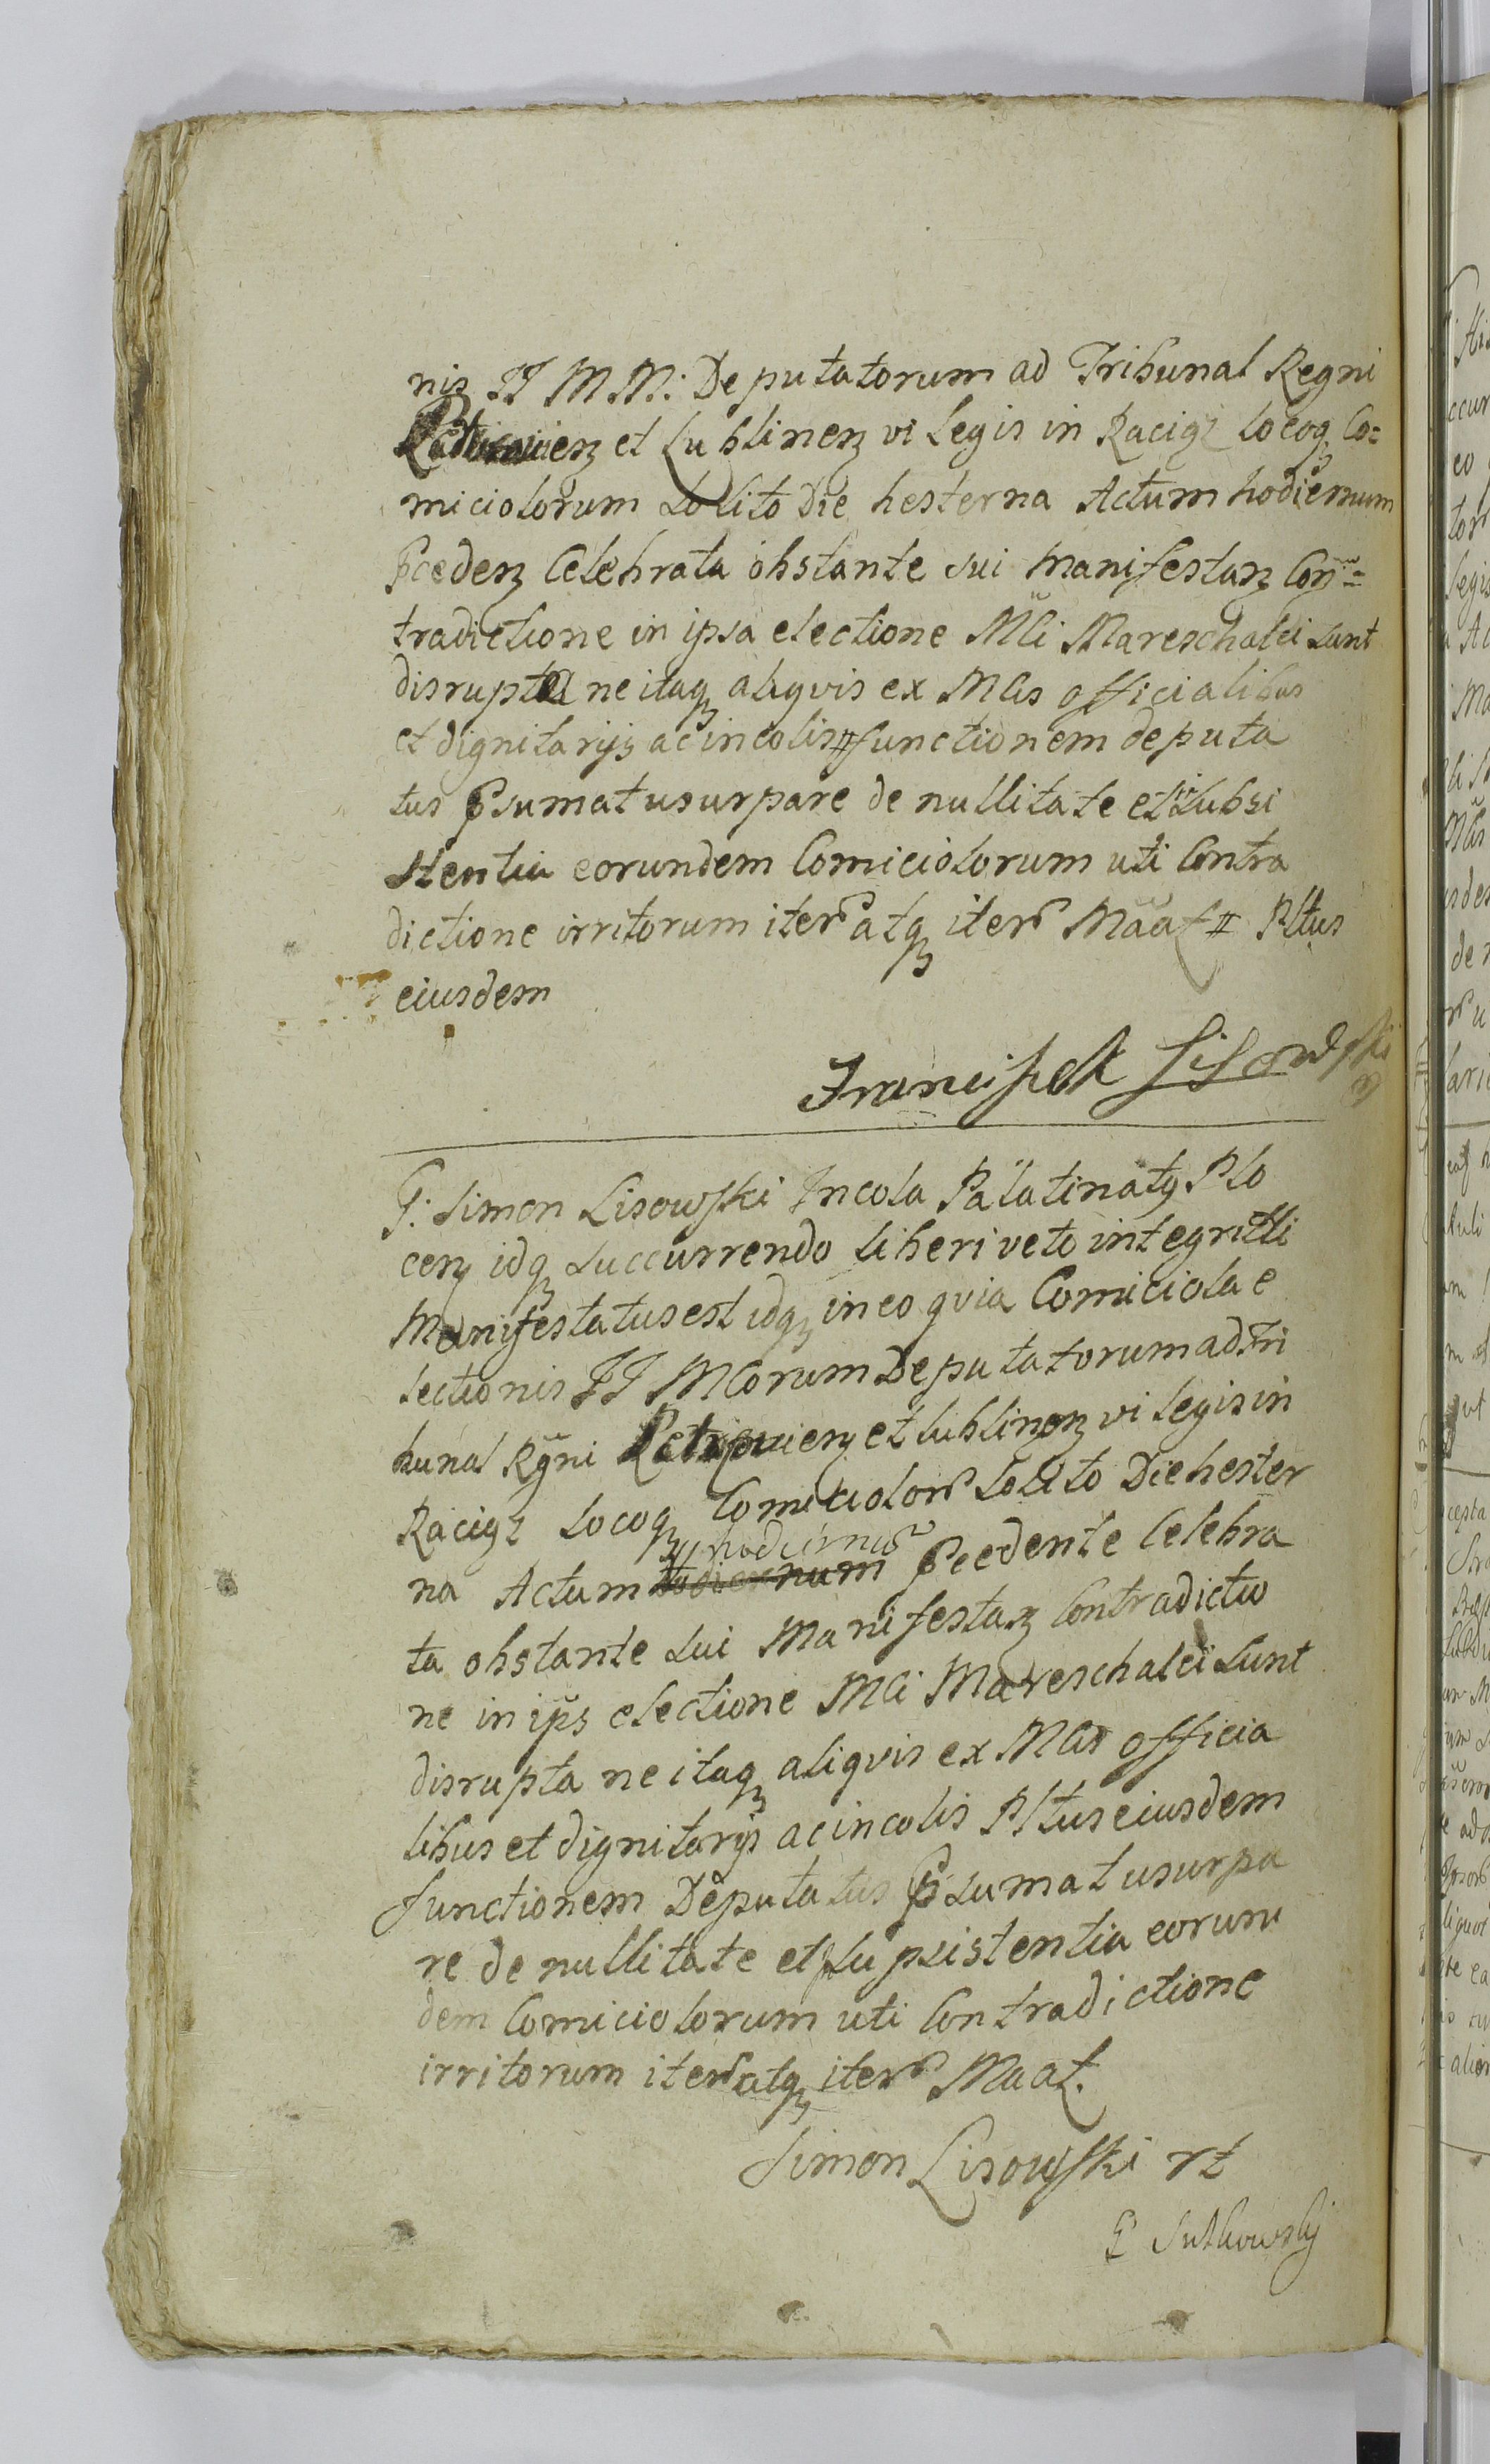 nis JJ MM: Deputatorum ad Tribunal Regni
Petricovien et Lublinen vi Legis in Raciąż Locoq Co=
miciolorum Solito Die hesterna Actum hodiernum
pceden Celebrata obstante sui Manifestan Con=
tradictione in ipsa electione Mci Mareschalci sunt
disrupta ne itaq aliqvis ex Mcis officialibus
et dignitarijs ac incolis # functionem deputa
tus psumat usurpare de nullitate et Subsi
stentia eorundem Comiciolorum uti Contra
dictione irritorum iter atq iter Maat # Pltus
eiusdem
Franciszek Lisowski
G: Simon Lisowski Incola Palatinatq Plo
cen idq Succurrendo liberi veto integritti
Manifestatus est idq in eo qvia Comiciola e
lectionis JJ MCorum Deputatorum ad Tri
bunal Rgni Petricovien et lublinen vi legis in
Raciąż Locoq Comiciolor Solito Die hester
na Actum hodiernu pcedente Celebra
ta obstante Sui Manifestan Contradictio
ne in ips electione Mci Mareschalci Sunt
disrupta ne itaq aliqvis ex Mcis officia
libus et dignitarijs ac incolis Pltus eiusdem
functionem Deputatus psumat usurpa
re de nullitate et supsistentia eorun
dem Comiciolorum uti Contradictione
irritorum iter atq iter Maat.
Simon Lisowski
Sutkowskj